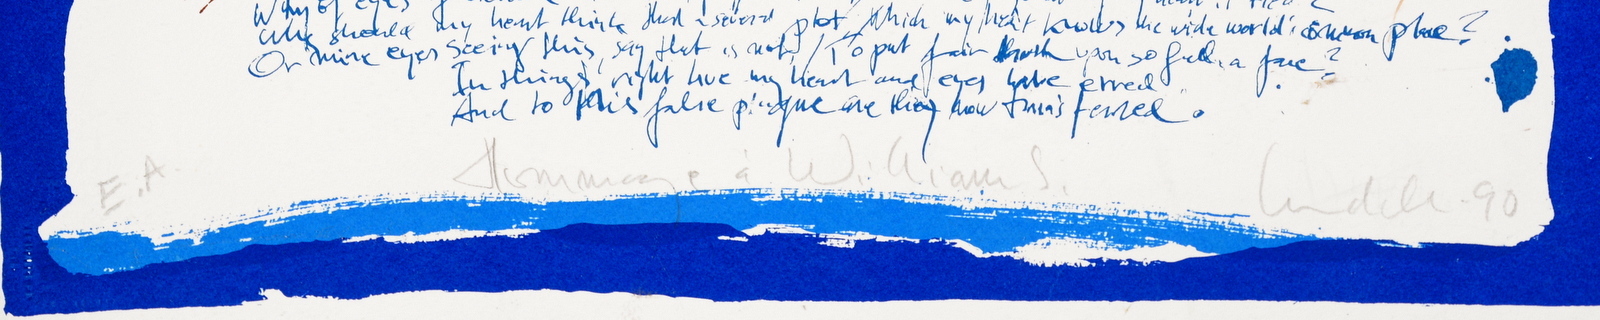 Why of eyes
Why should my heart think that a several plot, Which my heart knows the wide world's common place?
Or mine eyes seeing this, say that is not, / To put fair truth upon so foul a face?
In things right true my heart and eyes have erred
And to this false plague are they now transferred.
E.A. Hommage à William S. 90